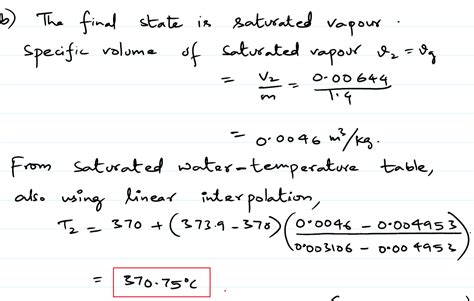 b) The final state is saturated vapour.
Specific volume of saturated vapour ϑ₂ = ϑg
= V₂/m = 0.00644/1.4
= 0.0046 m³/kg.
From saturated water-temperature table,
also using linear interpolation,
T₂ = 370 + (373.9 - 370) (0.0046 - 0.004953 / 0.003106 - 0.004953)
= 370.75°C